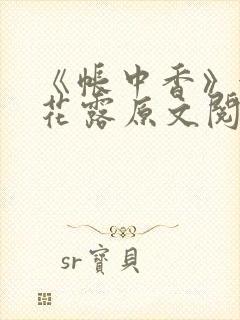 《帐中香》
花露原文阅
sr寶貝